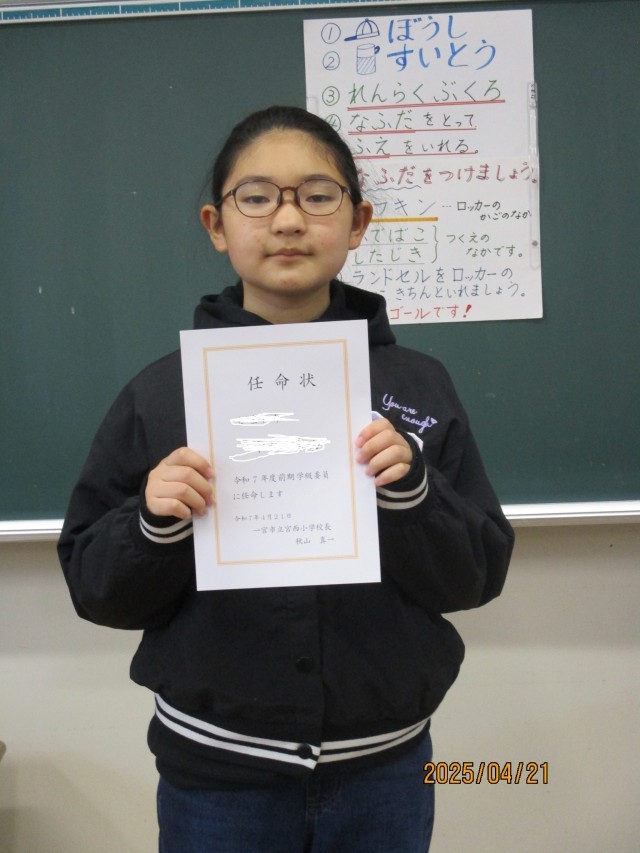 ① ぼうし
② すいとう
③ れんらくぶくろ
④ なふだをとって
ふえをいれる。
なふだをつけましょう。
キン … ロッカーの
かごのなか
でばこ つくえの
したじき なかです。
ランドセルをロッカーの
きちんといれましょう。
ゴールです!
You are
enough
任命状
令和7年度前期学級委員
に任命します
令和7年4月21日
一宮市立宮西小学校長
秋山
2025/04/21